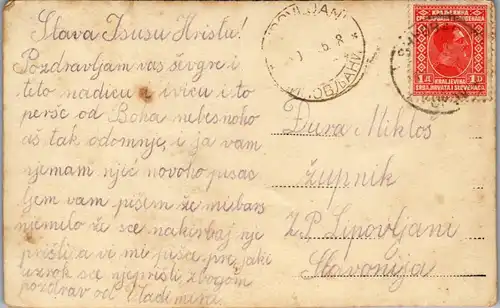 Slava Isusu Hristu!
Pozdravljam vas ševgre i
teto nadicu a ivicu i to
perše od Boha nebesnoho
aš tak odomnje, i ja vam
njemam njič novoho pisas
ljem vam pišem že mi bars
njemilo že sce nakirbaj nje
prišli a vi mi piša, pre jaki
uzrok sce njeprišli zbogom
pozdrav od Vladimira.
LIPOVLJANI
КРАЉЕВИНА
СРБА, ХРВАТА И СЛОВЕНАЦА
1 Д 1 D
KRALJEVINA
SRBA, HRVATA I SLOVENACA
Đura Mikloš
župnik
Z.P. Lipovljani
Slavonija